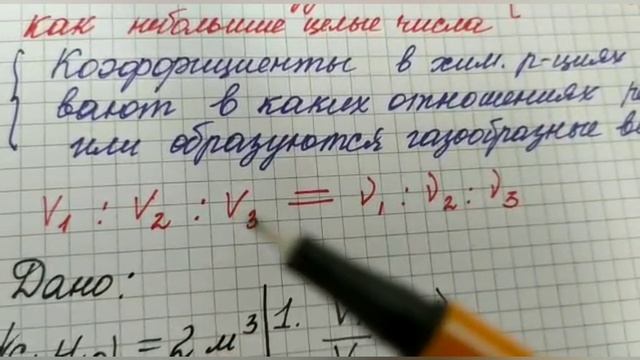 как небольшие целые числа
Коэффициенты в хим. р-циях
вают в каких отношениях
или образуются газообразные
V₁ : V₂ : V₃ = ν₁ : ν₂ : ν₃
Дано:
= 2 м³ 1.